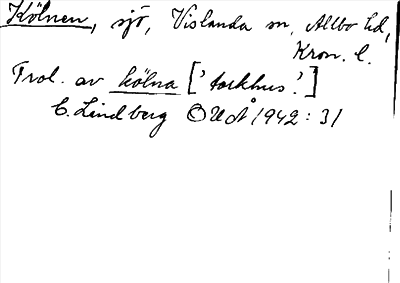 Kölnen, sjö, Vislanda sn, Allbo hd,
Kron. l.
Trol. av kölna ['torkhus'.]
C. Lindberg OUÅ 1942: 31